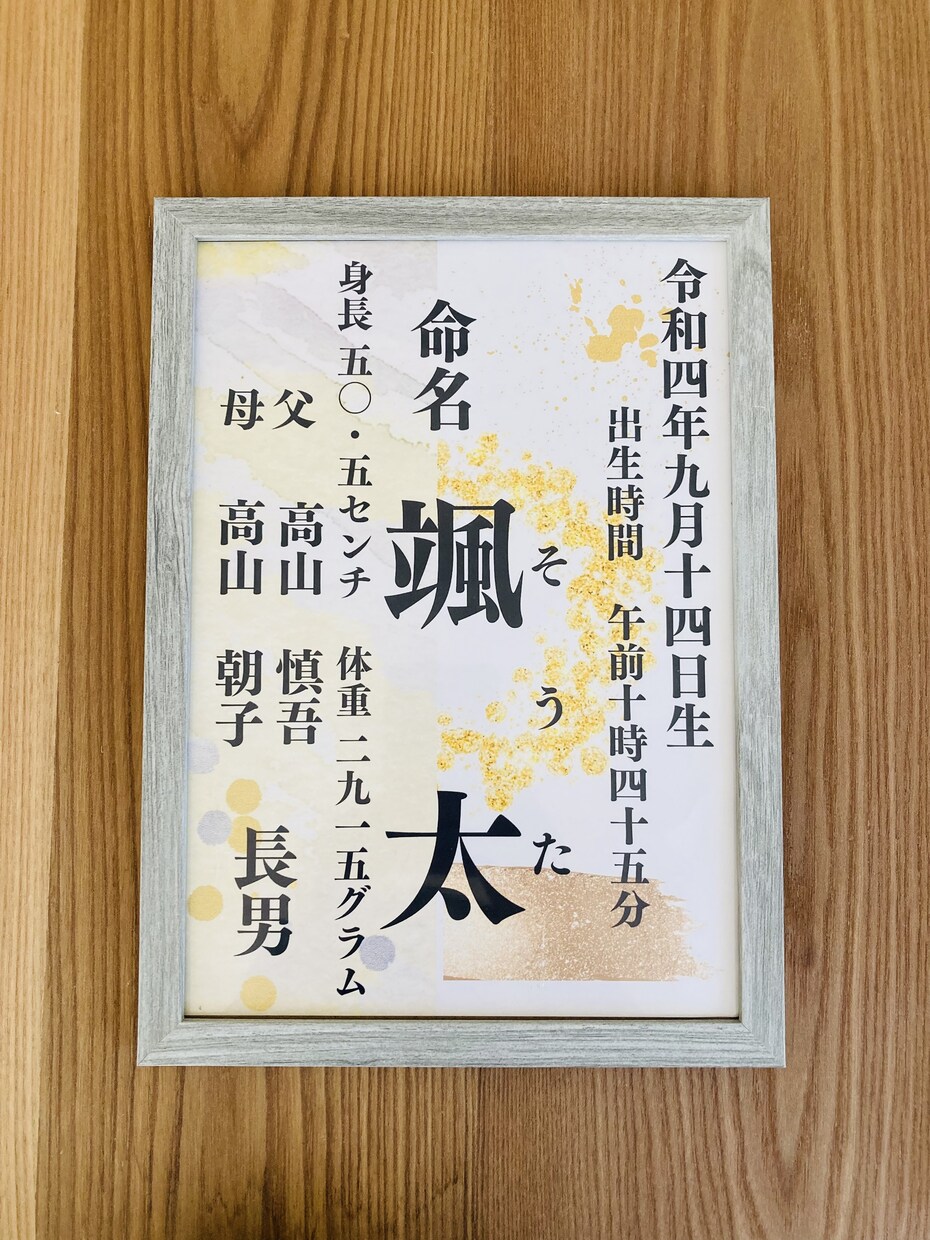 令和四年九月十四日生
出生時間 午前十時四十五分
そうた
命名 颯太
身長 五〇・五センチ 体重 二九一五グラム
父 高山 慎吾
母 高山 朝子
長男